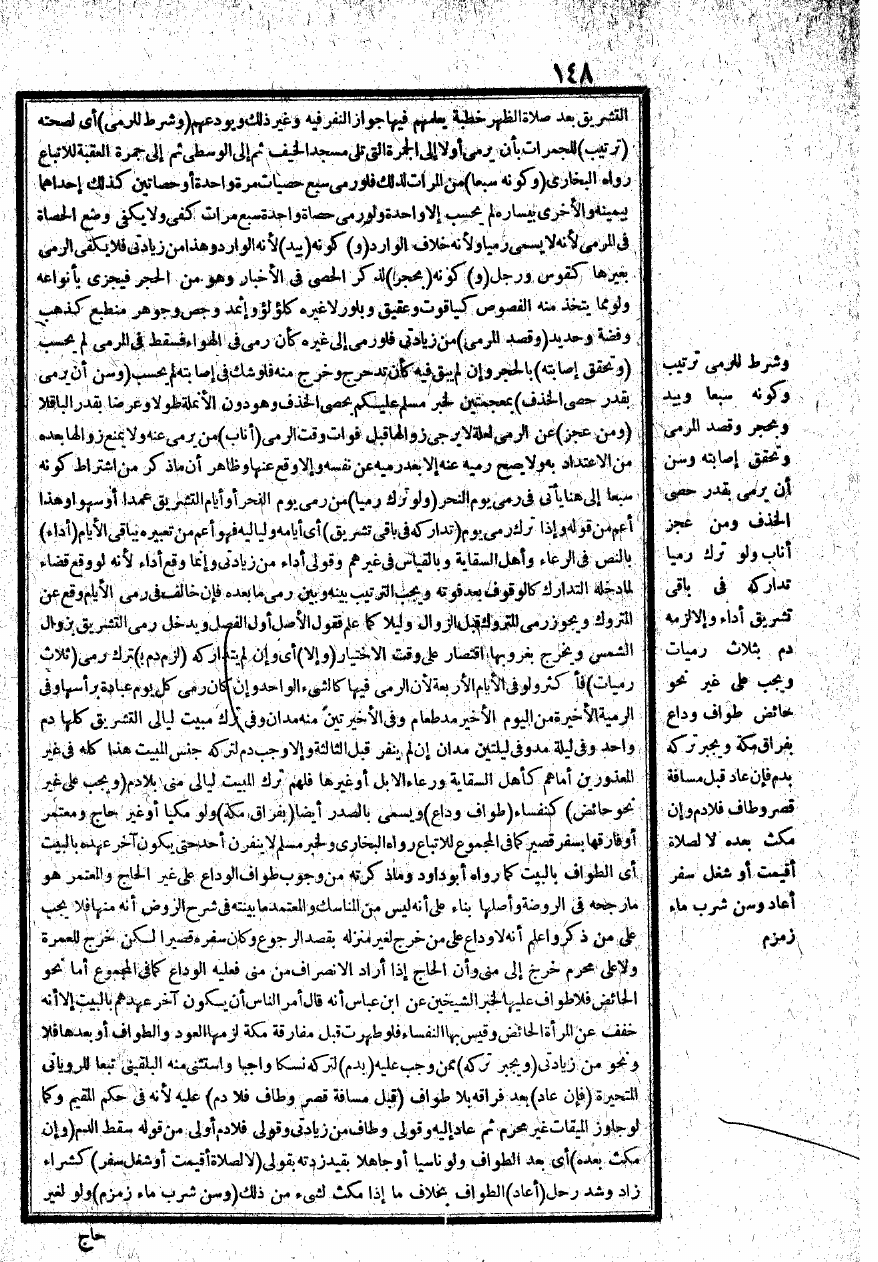 ١٤٨
التشريق بعد صلاة الظهر خطبة يعلمهم فيها جواز النفر فيه وغير ذلك ويودعهم (وشرط للرمى) أى لصحته
(ترتيب) للجمرات بأن يرمى أولا إلى الجمرة التى تلى مسجد الخيف ثم إلى الوسطى ثم إلى جمرة العقبة للاتباع
رواه البخارى (وكونه سبعا) من المرات لذلك فلو رمى سبع حصيات مرة واحدة أو حصاتين كذلك إحداهما
بيمينه والأخرى بيساره لم يحسب إلا واحدة ولو رمى حصاة واحدة سبع مرات كفى ولا يكفى وضع الحصاة
فى المرمى لأنه لا يسمى رميا ولأنه خلاف الوارد (و) كونه (بيد) لأنه الوارد وهذا من زيادتى فلا يكفى الرمى
بغيرها كقوس ورجل (و) كونه (بحجر) لذكر الحصى فى الأخبار وهو من الحجر فيجزى بأنواعه
ولو مما يتخذ منه الفصوص كياقوت وعقيق وبلور لا غيره كلؤلؤ وإثمد وجص وجوهر منطبع كذهب
وفضة وحديد (وقصد المرمى) من زيادتى فلو رمى إلى غيره كأن رمى فى الهواء فسقط فى المرمى لم يحسب
(وتحقق إصابته) بالحجر وإن لم يبق فيه كأن تدحرج وخرج منه فلو شك فى إصابته لم يحسب (وسن أن يرمى
بقدر حصى الخذف) بمعجمتين لخبر مسلم عليكم بحصى الخذف وهو دون الأنملة طولا وعرضا بقدر الباقلا
(ومن عجز) عن الرمى لعلة لا يرجى زوالها قبل فوات وقت الرمى (أناب) من يرمى عنه ولا يمنع زوالها بعده
من الاعتداد به ولا يصح رميه عنه إلا بعد رميه عن نفسه وإلا وقع عنها وظاهر أن ما ذكر من اشتراط كونه
سبعا إلى هنا يأتى فى رمى يوم النحر (ولو ترك رميا) من رمى يوم النحر أو أيام التشريق عمدا أو سهوا وهذا
أعم من قوله وإذا ترك رمى يوم (تداركه فى باقى تشريق) أى أيامه ولياليه فهو أعم من تعبيره بباقى الأيام (أداء)
بالنص فى الرعاء وأهل السقاية وبالقياس فى غيرهم وقولى أداء من زيادتى وإنما وقع أداء لأنه لو وقع قضاء
لما دخله التدارك كالوقوف بعد فوته ويجب الترتيب بينه وبين رمى ما بعده فإن خالف فى رمى الأيام وقع عن
المتروك ويجوز رمى المتروك قبل الزوال وليلا كما علم فقول الأصل أول الفصل ويدخل رمى التشريق بزوال
الشمس ويخرج بغروبها اقتصار على وقت الاختيار (وإلا) أى وإن لم يتداركه (لزم دم ب) ترك رمى (ثلاث
رميات) فأكثر ولو فى الأيام الأربعة لأن الرمى فيها كالشىء الواحد وإن كان رمى كل يوم عبادة برأسها وفى
الرمية الأخيرة من اليوم الأخير مد طعام وفى الأخيرتين منه مدان وفى ترك مبيت ليالى التشريق كلها دم
واحد وفى ليلة مد وفى ليلتين مدان إن لم ينفر قبل الثالثة وإلا وجب دم لتركه جنس المبيت هذا كله فى غير
المعذورين أما هم كأهل السقاية ورعاء الابل أو غيرها فلهم ترك المبيت ليالى منى بلا دم (ويجب على غير
نحو حائض) كنفساء (طواف وداع) ويسمى بالصدر أيضا (بفراق مكة) ولو مكيا أو غير حاج ومعتمر
أو فارقها بسفر قصير كما فى المجموع للاتباع رواه البخارى ولخبر مسلم لا ينفرن أحد حتى يكون آخر عهده بالبيت
أى الطواف بالبيت كما رواه أبو داود وما ذكرته من وجوب طواف الوداع على غير الحاج والمعتمر هو
ما رجحه فى الروضة وأصلها بناء على أنه ليس من المناسك والمعتمد ما بينته فى شرح الروض أنه منها فلا يجب
على من ذكر واعلم أنه لا وداع على من خرج لغير منزله بقصد الرجوع وكان سفره قصيرا لكن خرج للعمرة
ولا على محرم خرج إلى منى وأن الحاج إذا أراد الانصراف من منى فعليه الوداع كما فى المجموع أما نحو
الحائض فلا طواف عليها لخبر الشيخين عن ابن عباس أنه قال أمر الناس أن يكون آخر عهدهم بالبيت إلا أنه
خفف عن المرأة الحائض وقيس بها النفساء فلو طهرت قبل مفارقة مكة لزمها العود والطواف أو بعدها فلا
ونحو من زيادتى (ويجبر تركه) ممن وجب عليه (بدم) لتركه نسكا واجبا واستثنى منه البلقينى تبعا للرويانى
المتحيرة (فإن عاد) بعد فراقه بلا طواف (قبل مسافة قصر وطاف فلا دم) عليه لأنه فى حكم المقيم وكما
لو جاوز الميقات غير محرم ثم عاد إليه وقولى وطاف من زيادتى وقولى فلا دم أولى من قوله سقط الدم (وإن
مكث بعده) أى بعد الطواف ولو ناسيا أو جاهلا بقيد زدته بقولى (لا لصلاة أقيمت أو شغل سفر) كشراء
زاد وشد رحل (أعاد) الطواف بخلاف ما إذا مكث لشىء من ذلك (وسن شرب ماء زمزم) ولو لغير
حاج
وشرط للرمى ترتيب
وكونه سبعا وبيد
وبحجر وقصد المرمى
وتحقق إصابته وسن
أن يرمى بقدر حصى
الخذف ومن عجز
أناب ولو ترك رميا
تداركه فى باقى
تشريق أداء وإلا لزمه
دم بثلاث رميات
ويجب على غير نحو
حائض طواف وداع
بفراق مكة ويجبر تركه
بدم فإن عاد قبل مسافة
قصر وطاف فلا دم وإن
مكث بعده لا لصلاة
أقيمت أو شغل سفر
أعاد وسن شرب ماء
زمزم